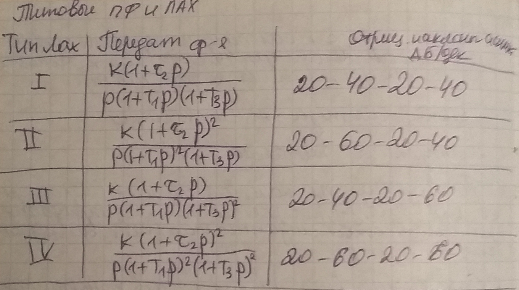 Типовые ПФ и ЛАХ
Тип Лах Передат ф-я Отриц. наклон
дБ/дек
I K(1+τ₂p) / p(1+T₁p)(1+T₃p) 20-40-20-40
II K(1+τ₂p)² / p(1+T₁p)²(1+T₃p) 20-60-20-40
III K(1+τ₂p) / p(1+T₁p)(1+T₃p)² 20-40-20-60
IV K(1+τ₂p)² / p(1+T₁p)²(1+T₃p)² 20-60-20-60